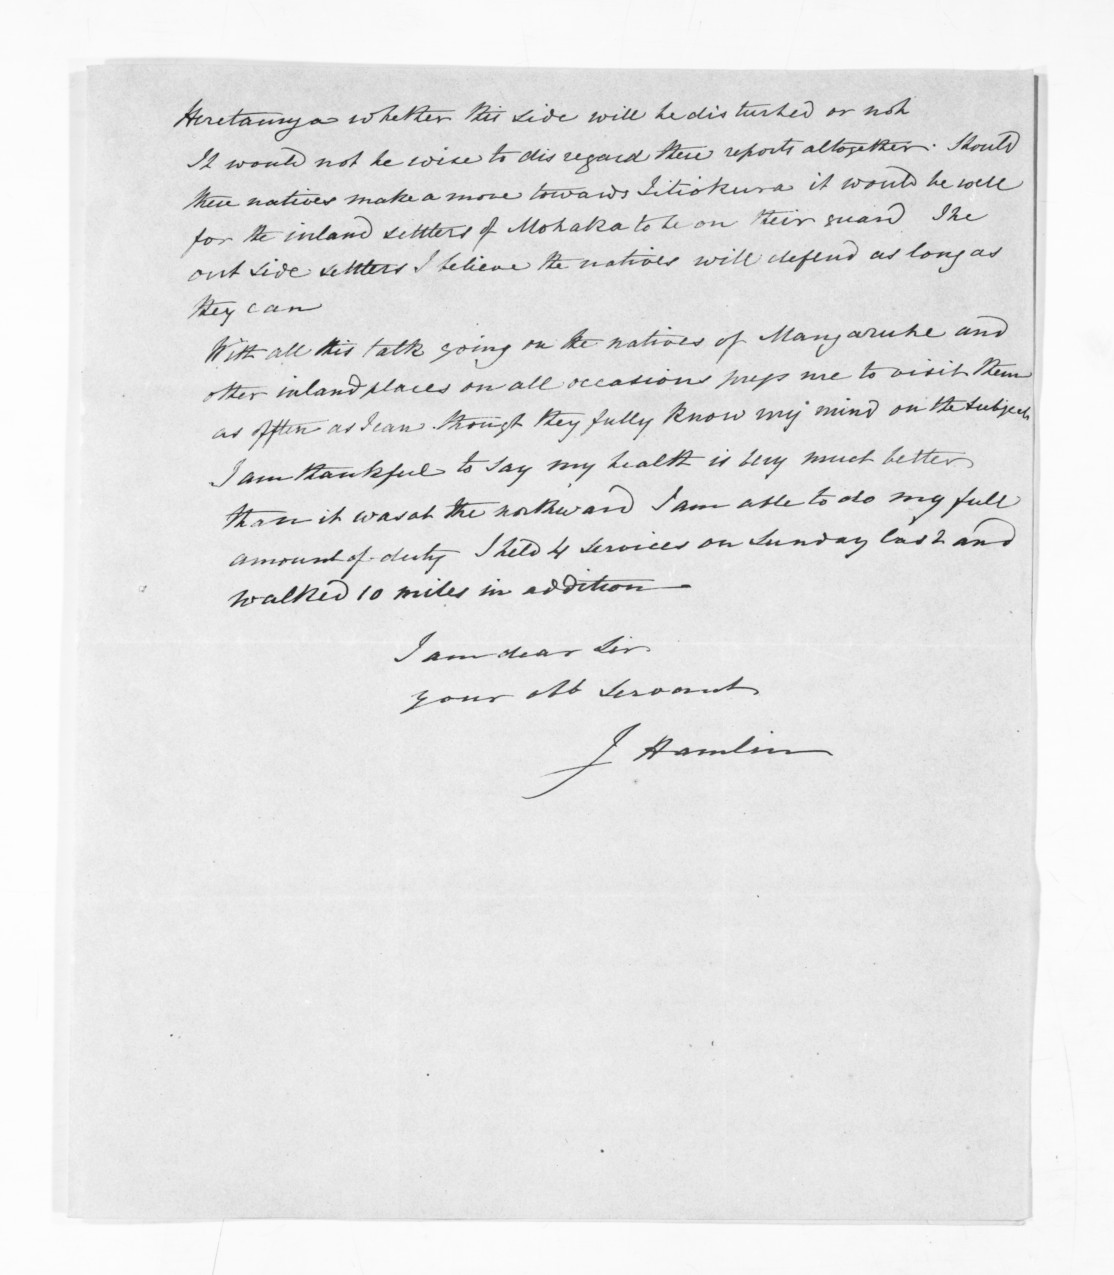 Heretaunga whether this side will be disturbed or not
It would not be wise to disregard these reports altogether. Should
these natives make a move towards Titiokura it would be well
for the inland settlers of Mohaka to be on their guard The
out side settlers I believe the natives will defend as long as
they can
With all this talk going on the natives of Mangaruhe and
other inland places on all occasions press me to visit them
as often as I can though they fully know my mind on the subject
I am thankful to say my health is very much better
than it was at the northward I am able to do my full
amount of duty I held 4 services on Sunday last and
walked 10 miles in addition
I am dear Sir
your obt servant
J Hamlin